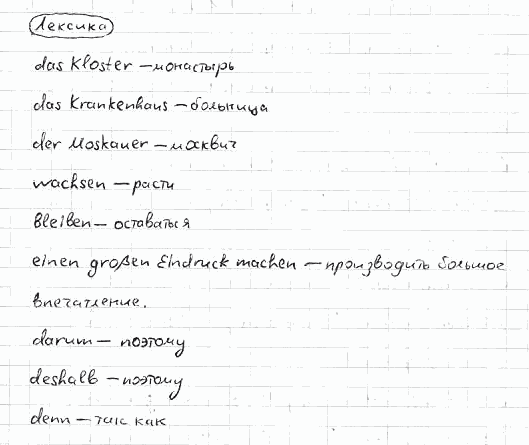 Лексика
das Kloster – монастырь
das Krankenhaus – больница
der Moskauer – москвич
wachsen – расти
Bleiben – оставаться
einen großen Eindruck machen – производить большое
впечатление.
darum – поэтому
deshalb – поэтому
denn – так как